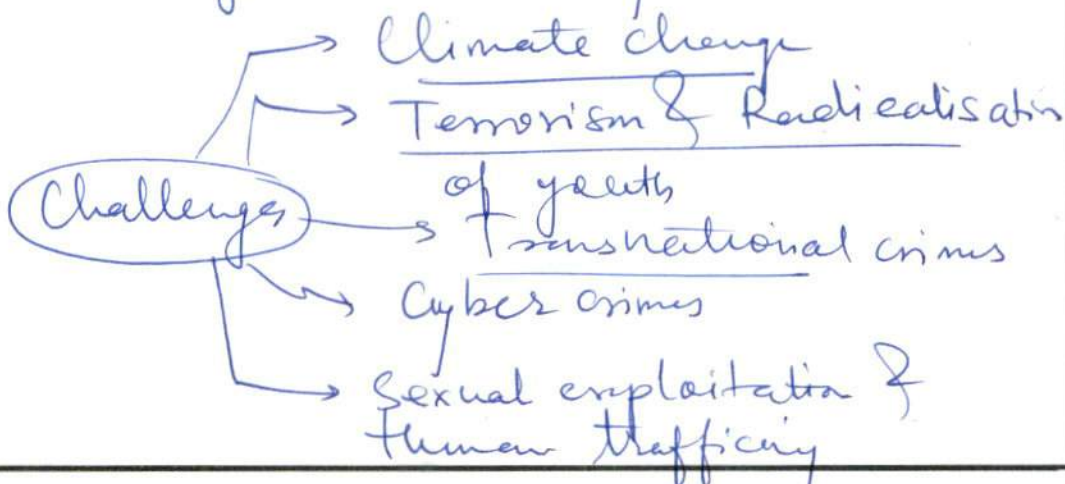 Climate change
Terrorism & Radicalisation
of youth
Challenges
Transnational crimes
Cyber crimes
Sexual exploitation &
Human trafficing